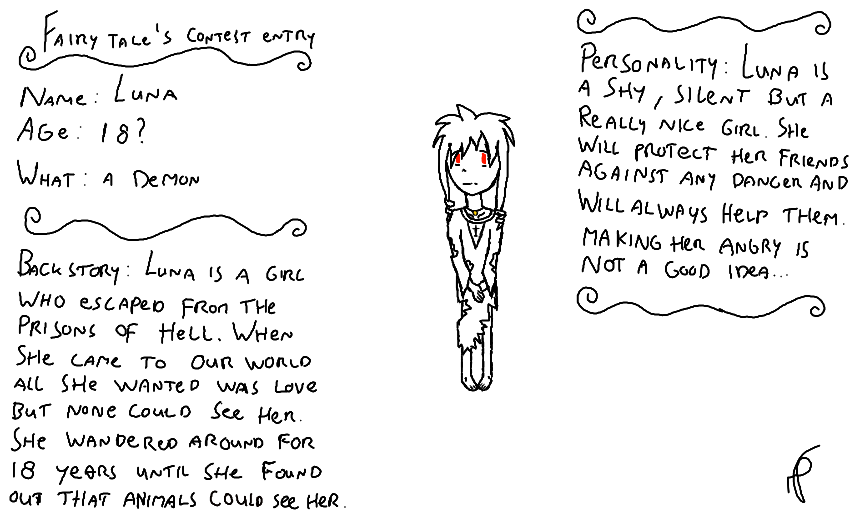 Fairy Tale's contest entry
Name: Luna
Age: 18?
What: a demon
Backstory: Luna is a girl
who escaped from the
prisons of Hell. When
she came to our world
all she wanted was love
but none could see her.
She wandered around for
18 years until she found
out that animals could see her.
Personality: Luna is
a shy, silent but a
really nice girl. She
will protect her friends
against any danger and
will always help them.
Making her angry is
not a good idea...